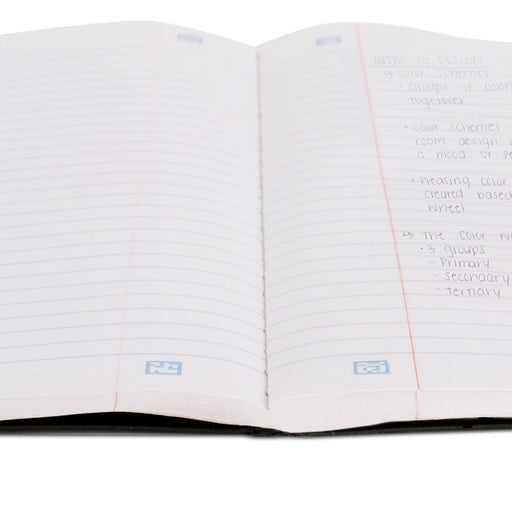 INTRO TO DESIGN
↳ Color schemes
• Groups of color
together
• Color schemes
room design
a mood or se
• Pleasing color
created based
wheel
↳ The Color w
• 3 groups:
- Primary
- Secondary
- Tertiary